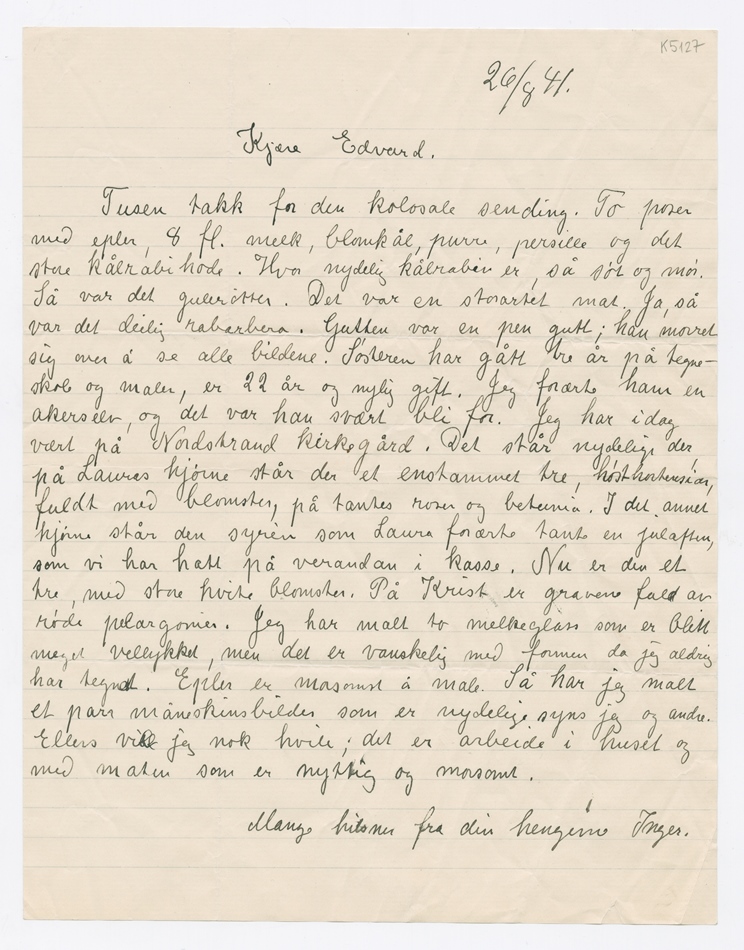 K5127
26/8 41.
Kjære Edvard.
Tusen takk for den kolosale sending. To poser
med epler, 8 fl. melk, blomkål, purre, persille og det
store kålrabihode. Hvor nydelig kålrabien er, så søt og mør.
Så var det gulerøtter. Det var en storartet mat. Ja, så
var det deilig rabarbera. Gutten var en pen gutt; han morret
sig over å se alle bildene. Søsteren har gått tre år på tegne-
skole og maler, er 22 år og nylig gift. Jeg forærte ham en
akerselv, og det var han svært bli for. Jeg har idag
vært på Nordstrand kirkegård. Det står nydelige der
på Lauras hjørne står der et enstammet tre, høsthortensiaer,
fuldt med blomster, på tantes roser og betunia. I det annet
hjørne står den syrèn som Laura forærte tante en julaften,
som vi har hatt på verandan i kasse. Nu er den et
tre, med store hvite blomster. På Krist er gravene fuld av
røde pelargonier. Jeg har malt to melkeglass som er blitt
meget vellykket, men det er vanskelig med formen da jeg aldrig
har tegnet. Epler er morsomst å male. Så har jeg malt
et parr måneskinsbilder som er nydelige syns jeg og andre.
Ellers vil jeg nok hvile; det er arbeide i huset og
med maten som er nyttig og morsomt.
Mange hilsner fra din hengivne Inger.